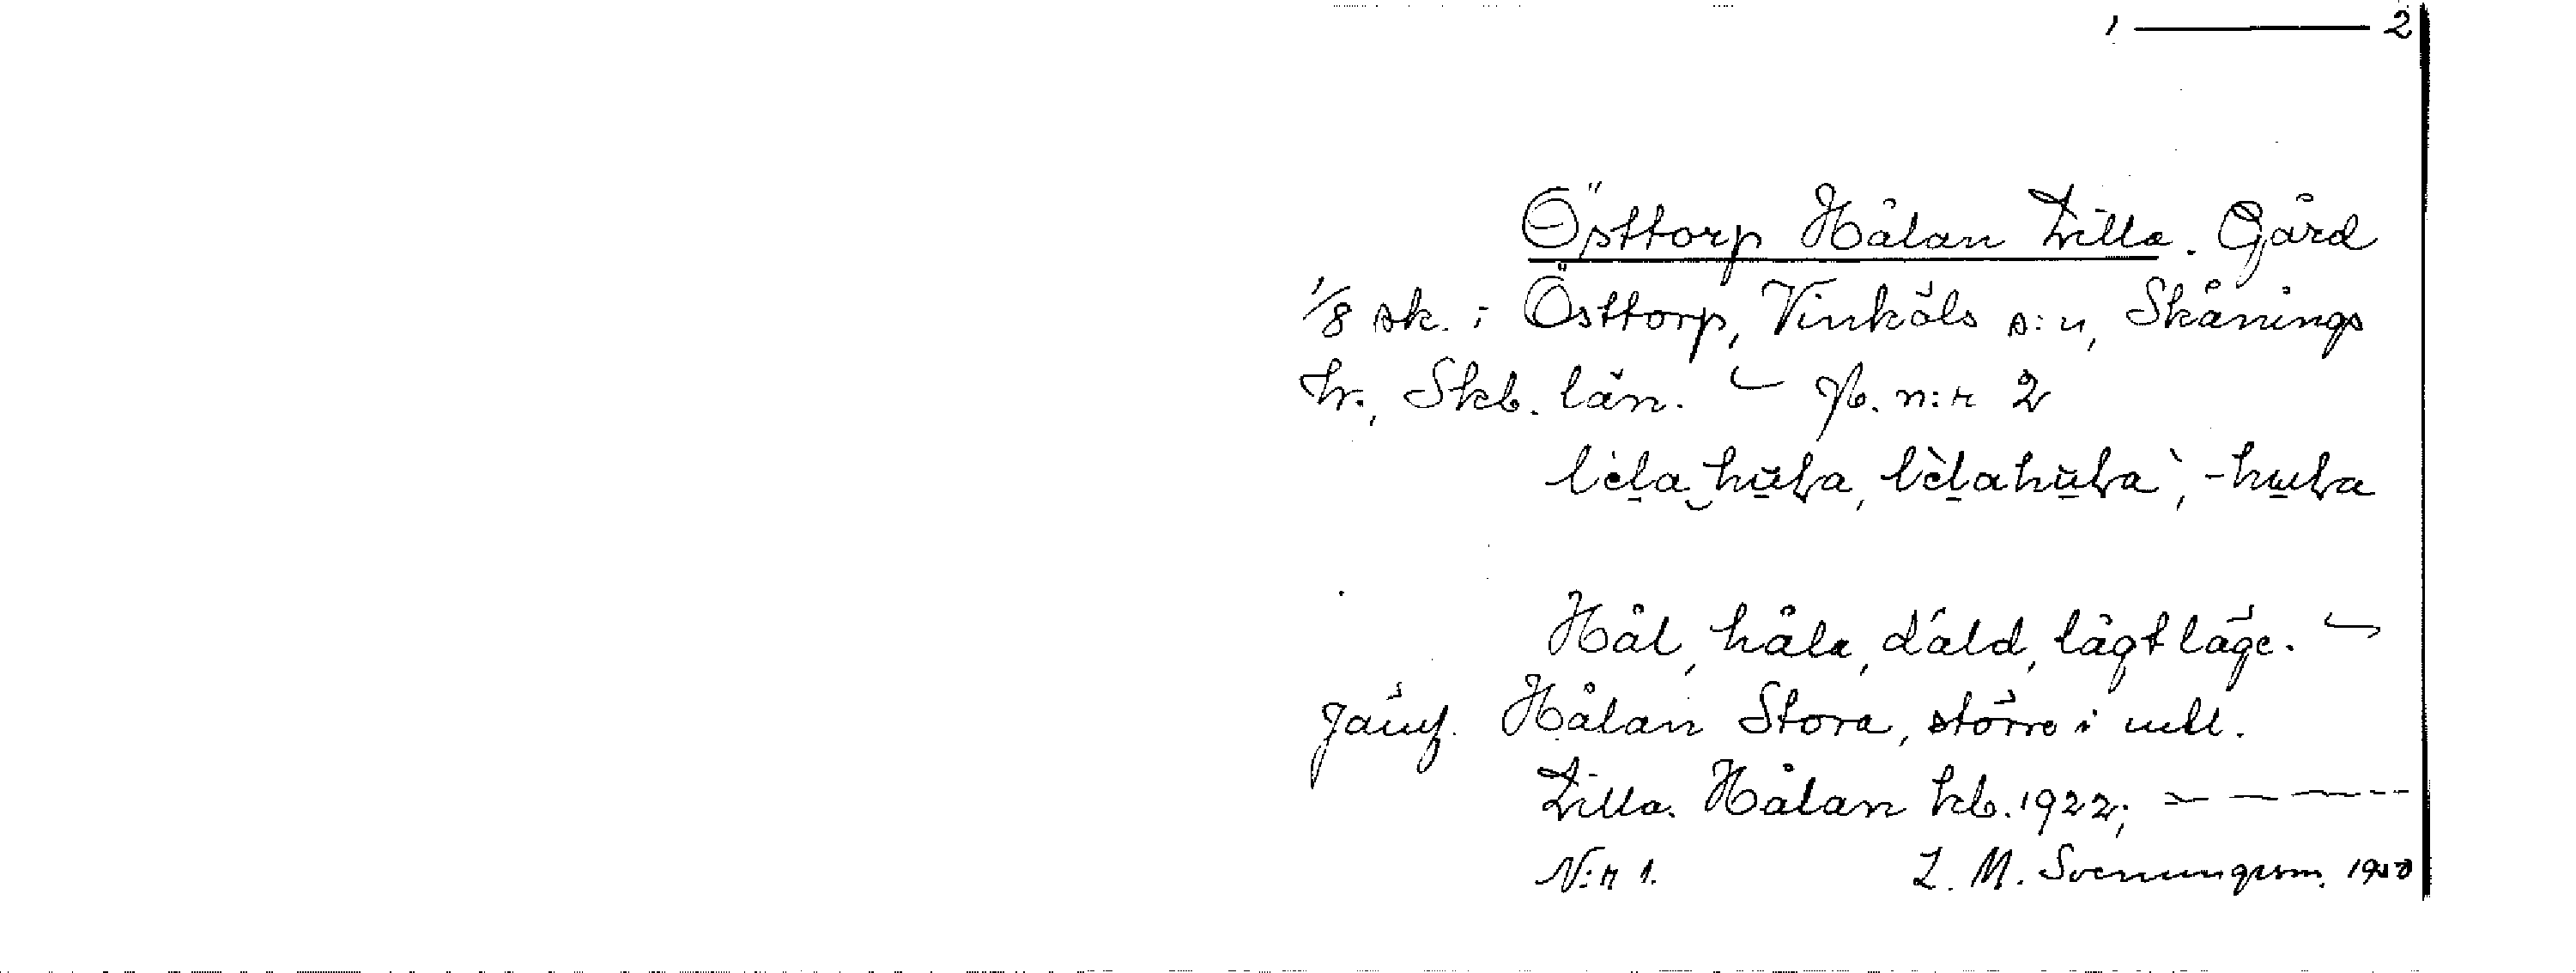 1 ——— 2
Östtorp Hålan Lilla. Gård
1/8 sk. i Östtorp, Vinköls s:n, Skånings
hr., Skb. län. jb. n:r 2
Hål, håla, däld, lågt läge.
jämf. Hålan Stora, större i mtl.
Lilla Hålan hb. 1922; – – – – –
N:r 1. L. M. Svenungsson.